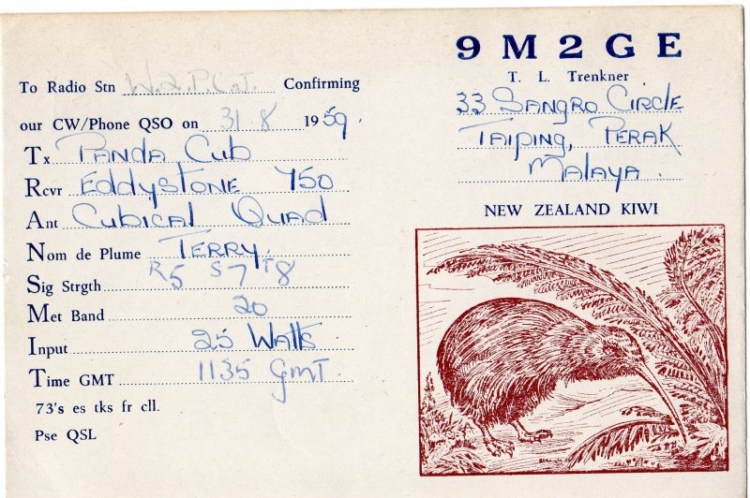 9M2GE
T. L. Trenkner
33 SANGRO CIRCLE
TAIPING, PERAK
MALAYA.
NEW ZEALAND KIWI
To Radio Stn Confirming
our CW/Phone QSO on 31 8 1959.
Tx PANDA CUB
Rcvr EDDYSTONE 750
Ant CUBICAL QUAD
Nom de Plume TERRY.
Sig Strgth R5 S7 T8
Met Band 20
Input 25 WATTS
Time GMT 1135 GMT
73's es tks fr cll.
Pse QSL